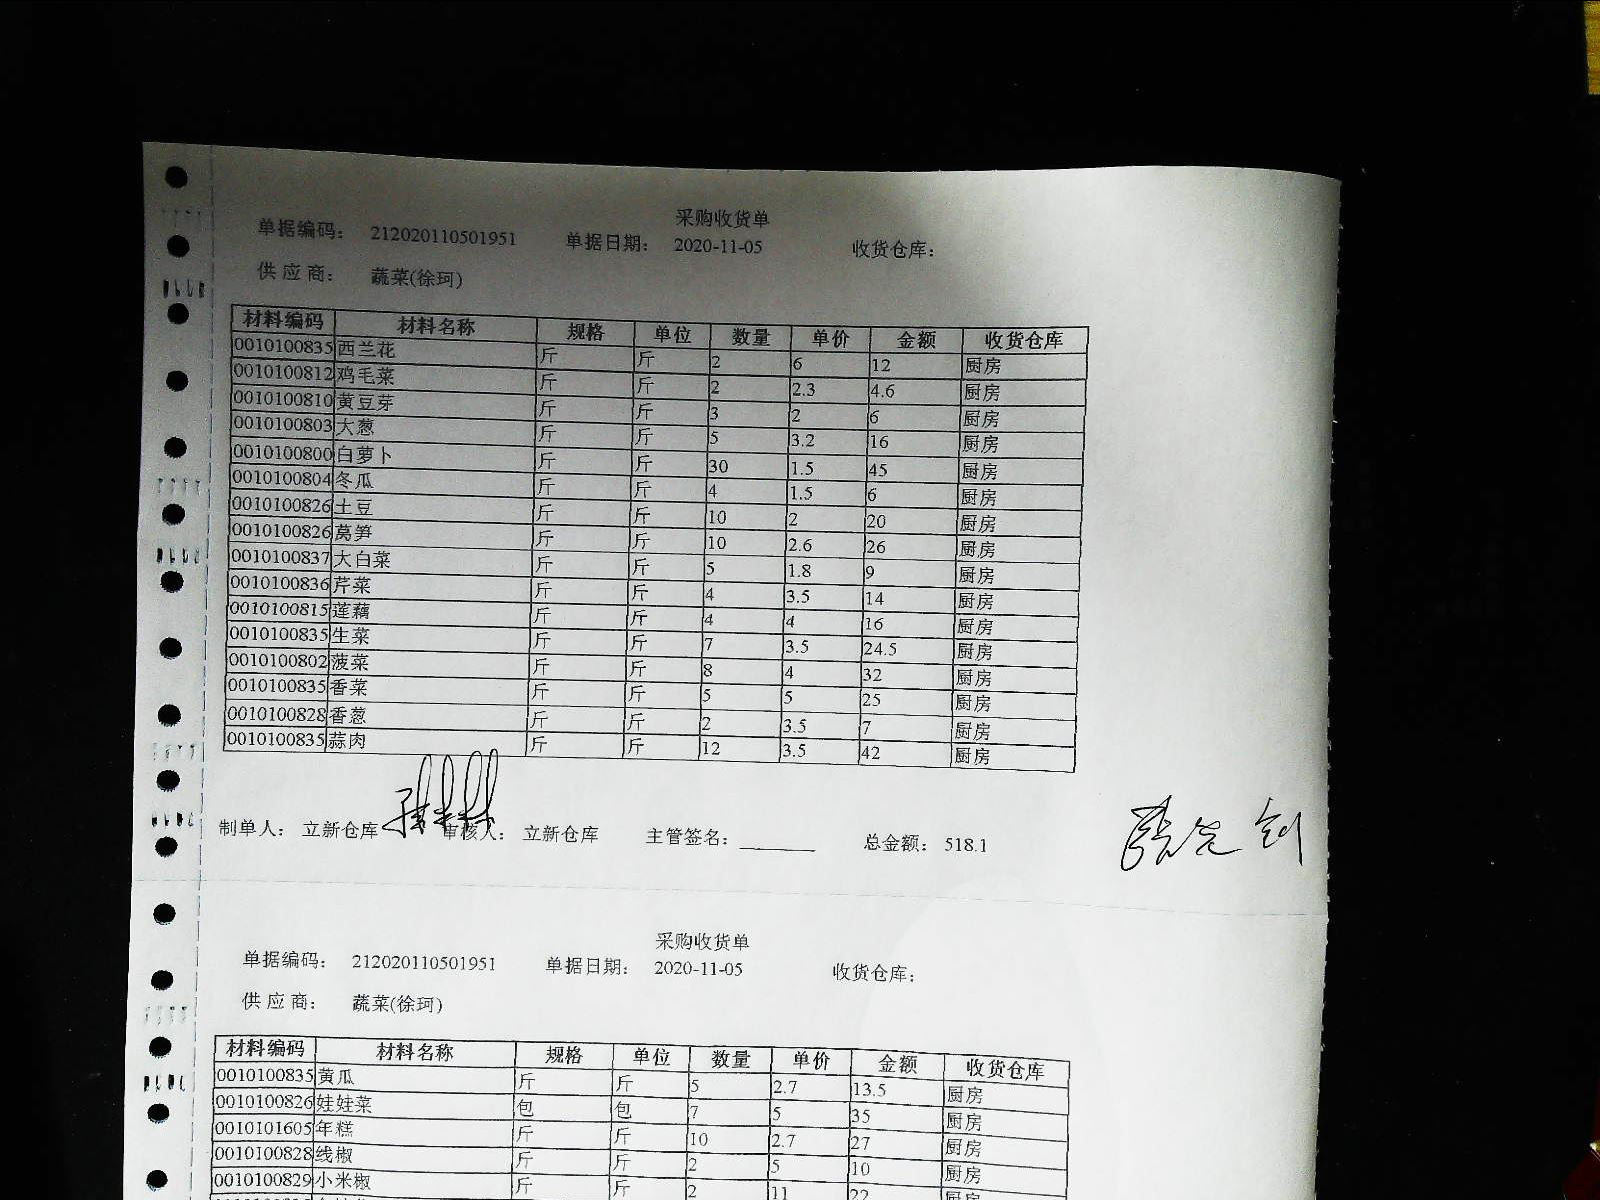 采购收货单
单据编码： 212020110501951 单据日期： 2020-11-05 收货仓库：
供 应 商： 蔬菜(徐珂)
材料编码 材料名称 规格 单位 数量 单价 金额 收货仓库
0010100835 西兰花 斤 斤 2 6 12 厨房
0010100812 鸡毛菜 斤 斤 2 2.3 4.6 厨房
0010100810 黄豆芽 斤 斤 3 2 6 厨房
0010100803 大葱 斤 斤 5 3.2 16 厨房
0010100800 白萝卜 斤 斤 30 1.5 45 厨房
0010100804 冬瓜 斤 斤 4 1.5 6 厨房
0010100826 土豆 斤 斤 10 2 20 厨房
0010100826 莴笋 斤 斤 10 2.6 26 厨房
0010100837 大白菜 斤 斤 5 1.8 9 厨房
0010100836 芹菜 斤 斤 4 3.5 14 厨房
0010100815 莲藕 斤 斤 4 4 16 厨房
0010100835 生菜 斤 斤 7 3.5 24.5 厨房
0010100802 菠菜 斤 斤 8 4 32 厨房
0010100835 香菜 斤 斤 5 5 25 厨房
0010100828 香葱 斤 斤 2 3.5 7 厨房
0010100835 蒜肉 斤 斤 12 3.5 42 厨房
制单人： 立新仓库 审核人： 立新仓库 主管签名：________ 总金额： 518.1
采购收货单
单据编码： 212020110501951 单据日期： 2020-11-05 收货仓库：
供 应 商： 蔬菜(徐珂)
材料编码 材料名称 规格 单位 数量 单价 金额 收货仓库
0010100835 黄瓜 斤 斤 5 2.7 13.5 厨房
0010100826 娃娃菜 包 包 7 5 35 厨房
0010101605 年糕 斤 斤 10 2.7 27 厨房
0010100828 线椒 斤 斤 2 5 10 厨房
0010100829 小米椒 斤 斤 2 11 22 厨房